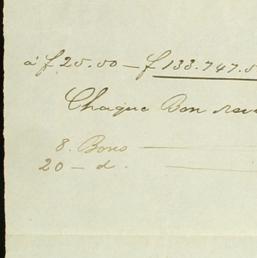 à f 25.00 — f 133.747.5
Chaque Bon
8. Bons —
20 — d. —